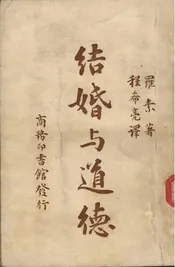 羅素著
程希亮譯
结婚与道德
商務印書館發行